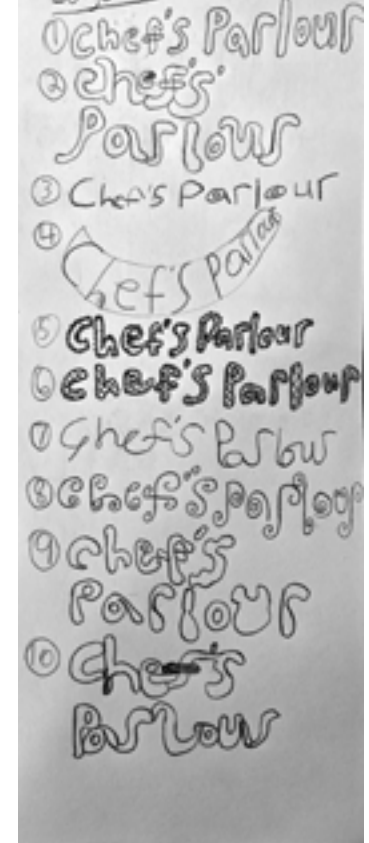 ① Chef's Parlour
② Chefs'
Parlour
③ Chef's Parlour
④ Chef's Parlour
⑤ Chef's Parlour
⑥ Chef's Parlour
⑦ Chef's Parlour
⑧ Chef's Parlour
⑨ Chef's
Parlour
⑩ Chef's
Parlour